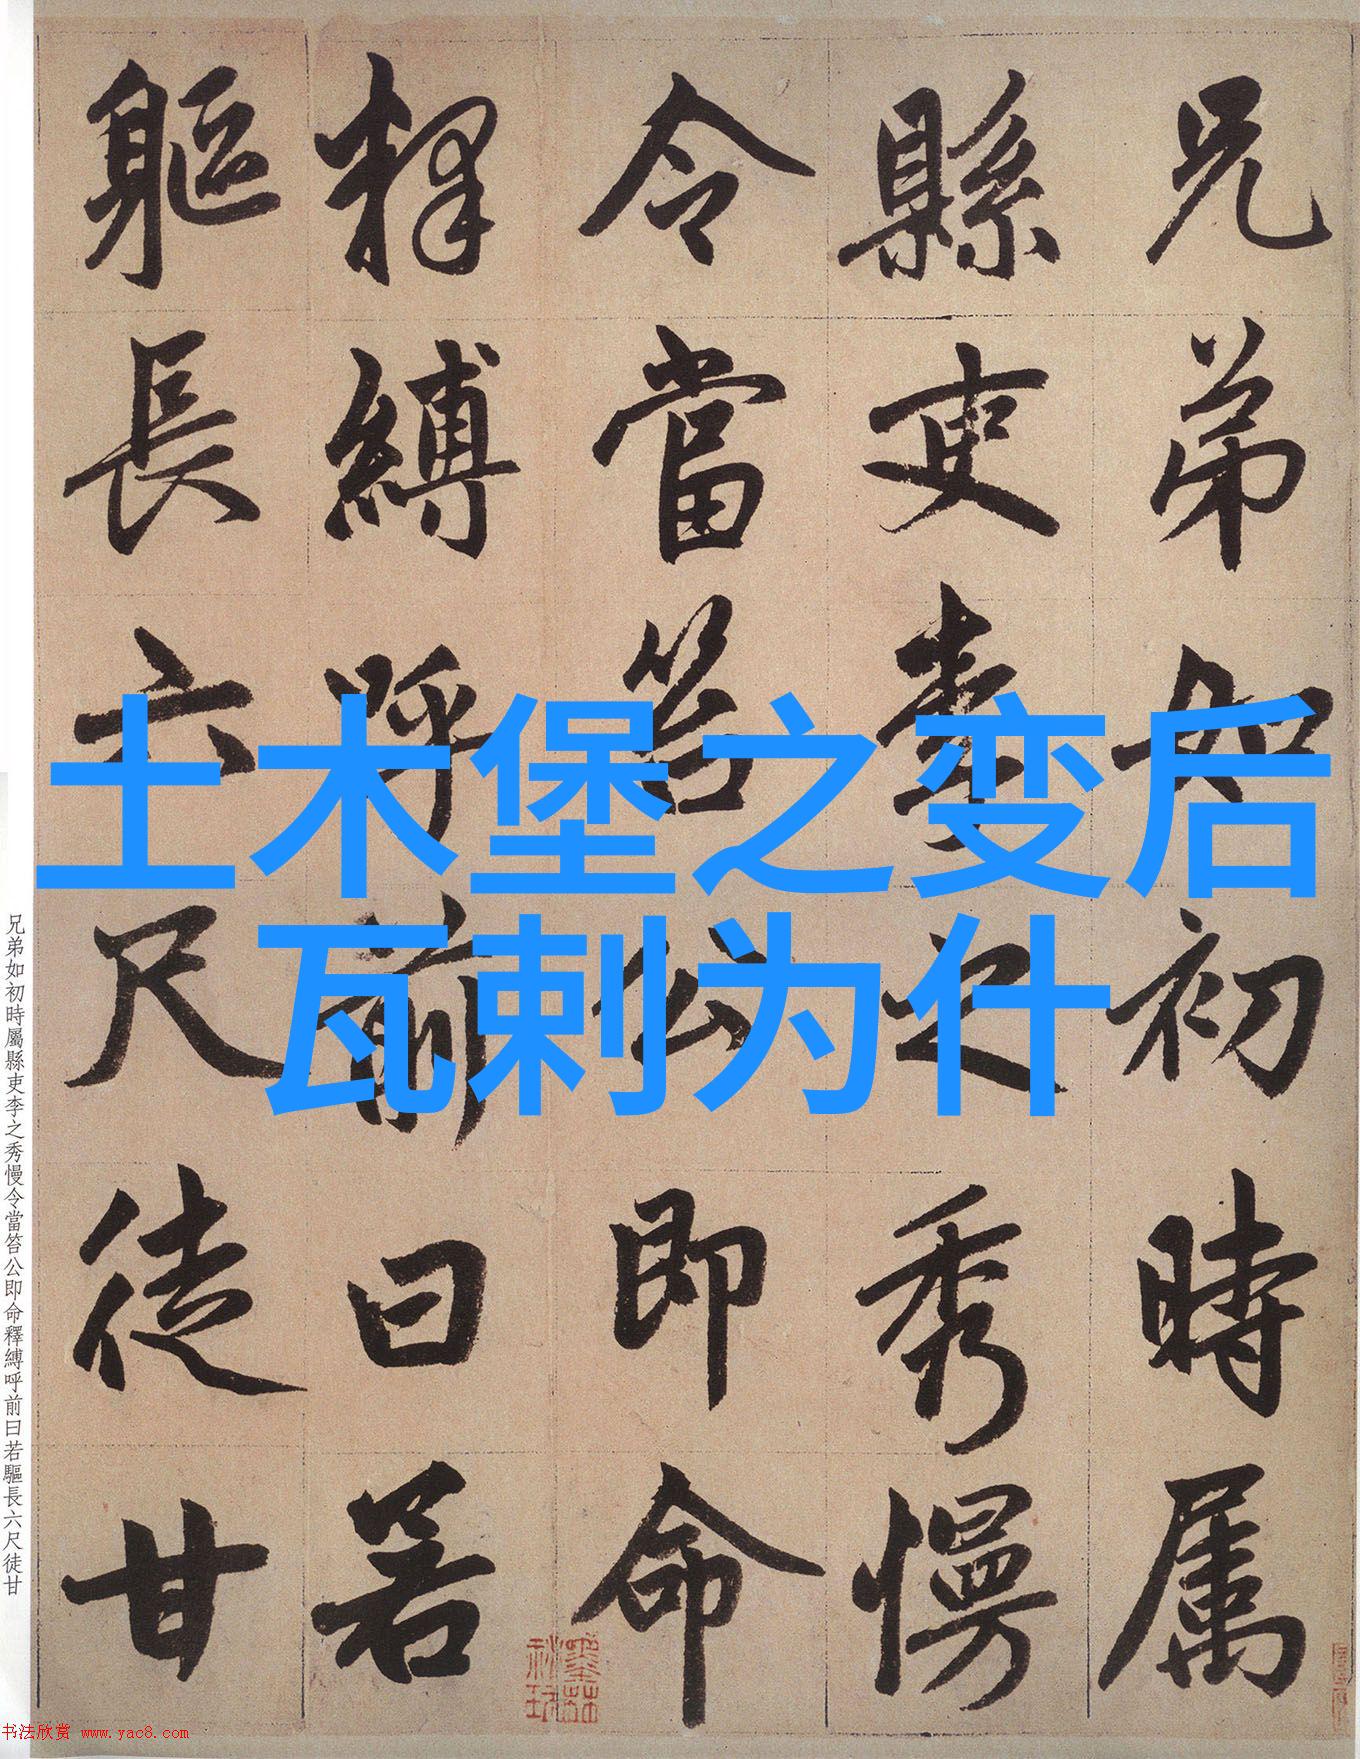 土木堡之变后
瓦剌为什
兄弟如初時属
縣吏李之秀慢
令當笞公即命
釋縛呼前曰若
軀長六尺徒甘
兄弟如初時屬縣吏李之秀慢令當笞公即命釋縛呼前曰若驅長六尺徒甘
书法欣赏 www.yac8.com